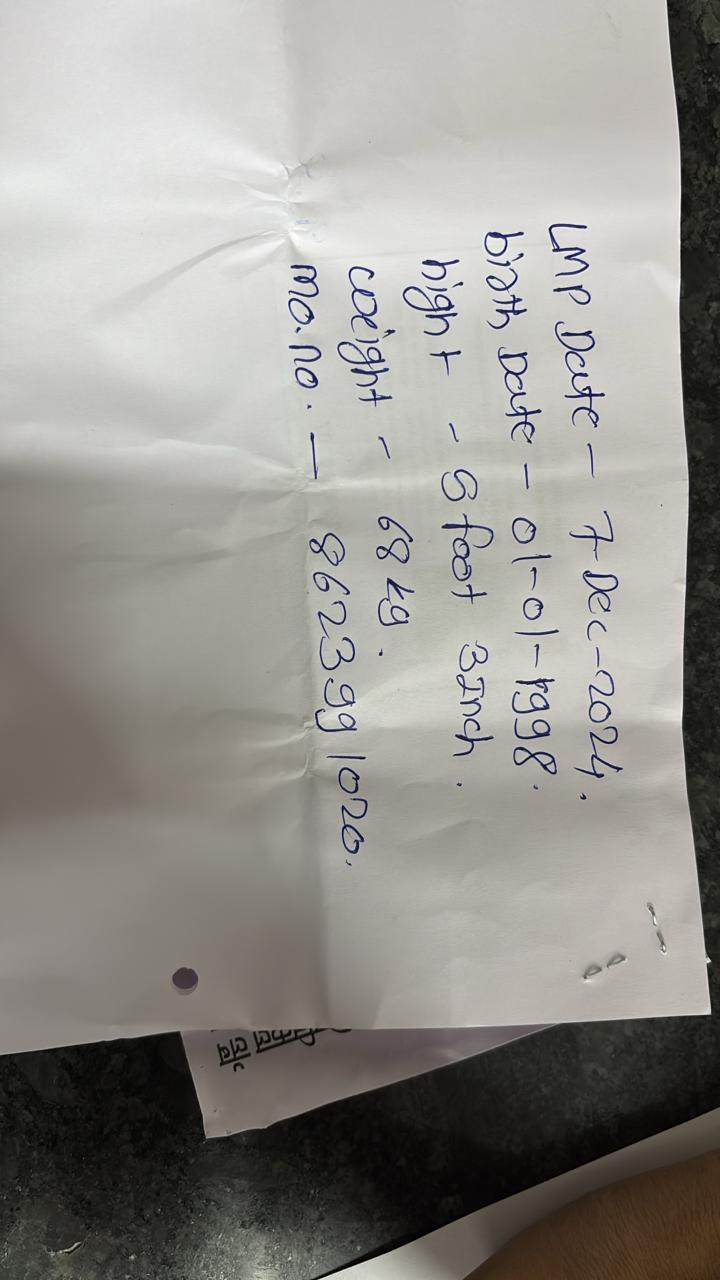 LMP Date - 7-Dec-2024.
birth Date - 01-01-1998.
hight - 5 foot 3Inch.
weight - 68 kg.
mo.no. - 8623991020.